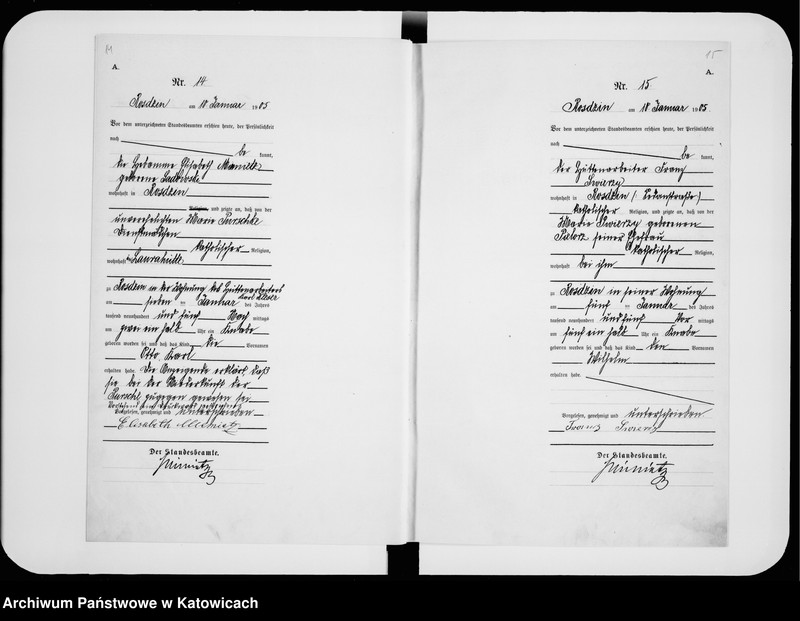 14
A.
Nr. 14
Rosdzin am 10 Januar 1905
Vor dem unterzeichneten Standesbeamten erschien heute, der Persönlichkeit
nach be kannt,
die Hebamme Elisabeth
geborene
wohnhaft in Rosdzin
Religion, und zeigte an, daß von der
unverehelichten Marie
Dienstmädchen
katholischer Religion,
wohnhaft Laurahütte
zu Rosdzin in der Wohnung des Hüttenarbeiters
Karl
am Januar des Jahres
tausend neunhundert und fünf Nach mittags
um zwei ein halb Uhr ein Knabe
geboren worden sei und daß das Kind die Vornamen
Otto Karl
erhalten habe. Die Anzeigende erklärt, daß
sie bei der Niederkunft der
zugegen gewesen sei
Vorgelesen, genehmigt und unterschrieben
Elisabeth
Der Standesbeamte.
15
A.
Nr. 15
Rosdzin am 10 Januar 1905.
Vor dem unterzeichneten Standesbeamten erschien heute, der Persönlichkeit
nach be kannt,
der Hüttenarbeiter Franz
Swierzy
wohnhaft in Rosdzin
katholischer Religion, und zeigte an, daß von der
Marie Swierzy geborenen
seiner Ehefrau
katholischer Religion,
wohnhaft bei ihm
zu Rosdzin in seiner Wohnung
am fünf ten Januar des Jahres
tausend neunhundert und fünf Vor mittags
um fünf ein halb Uhr ein Knabe
geboren worden sei und daß das Kind den Vornamen
Wilhelm
erhalten habe.
Vorgelesen, genehmigt und unterschrieben
Franz Swierzy
Der Standesbeamte.
Archiwum Państwowe w Katowicach